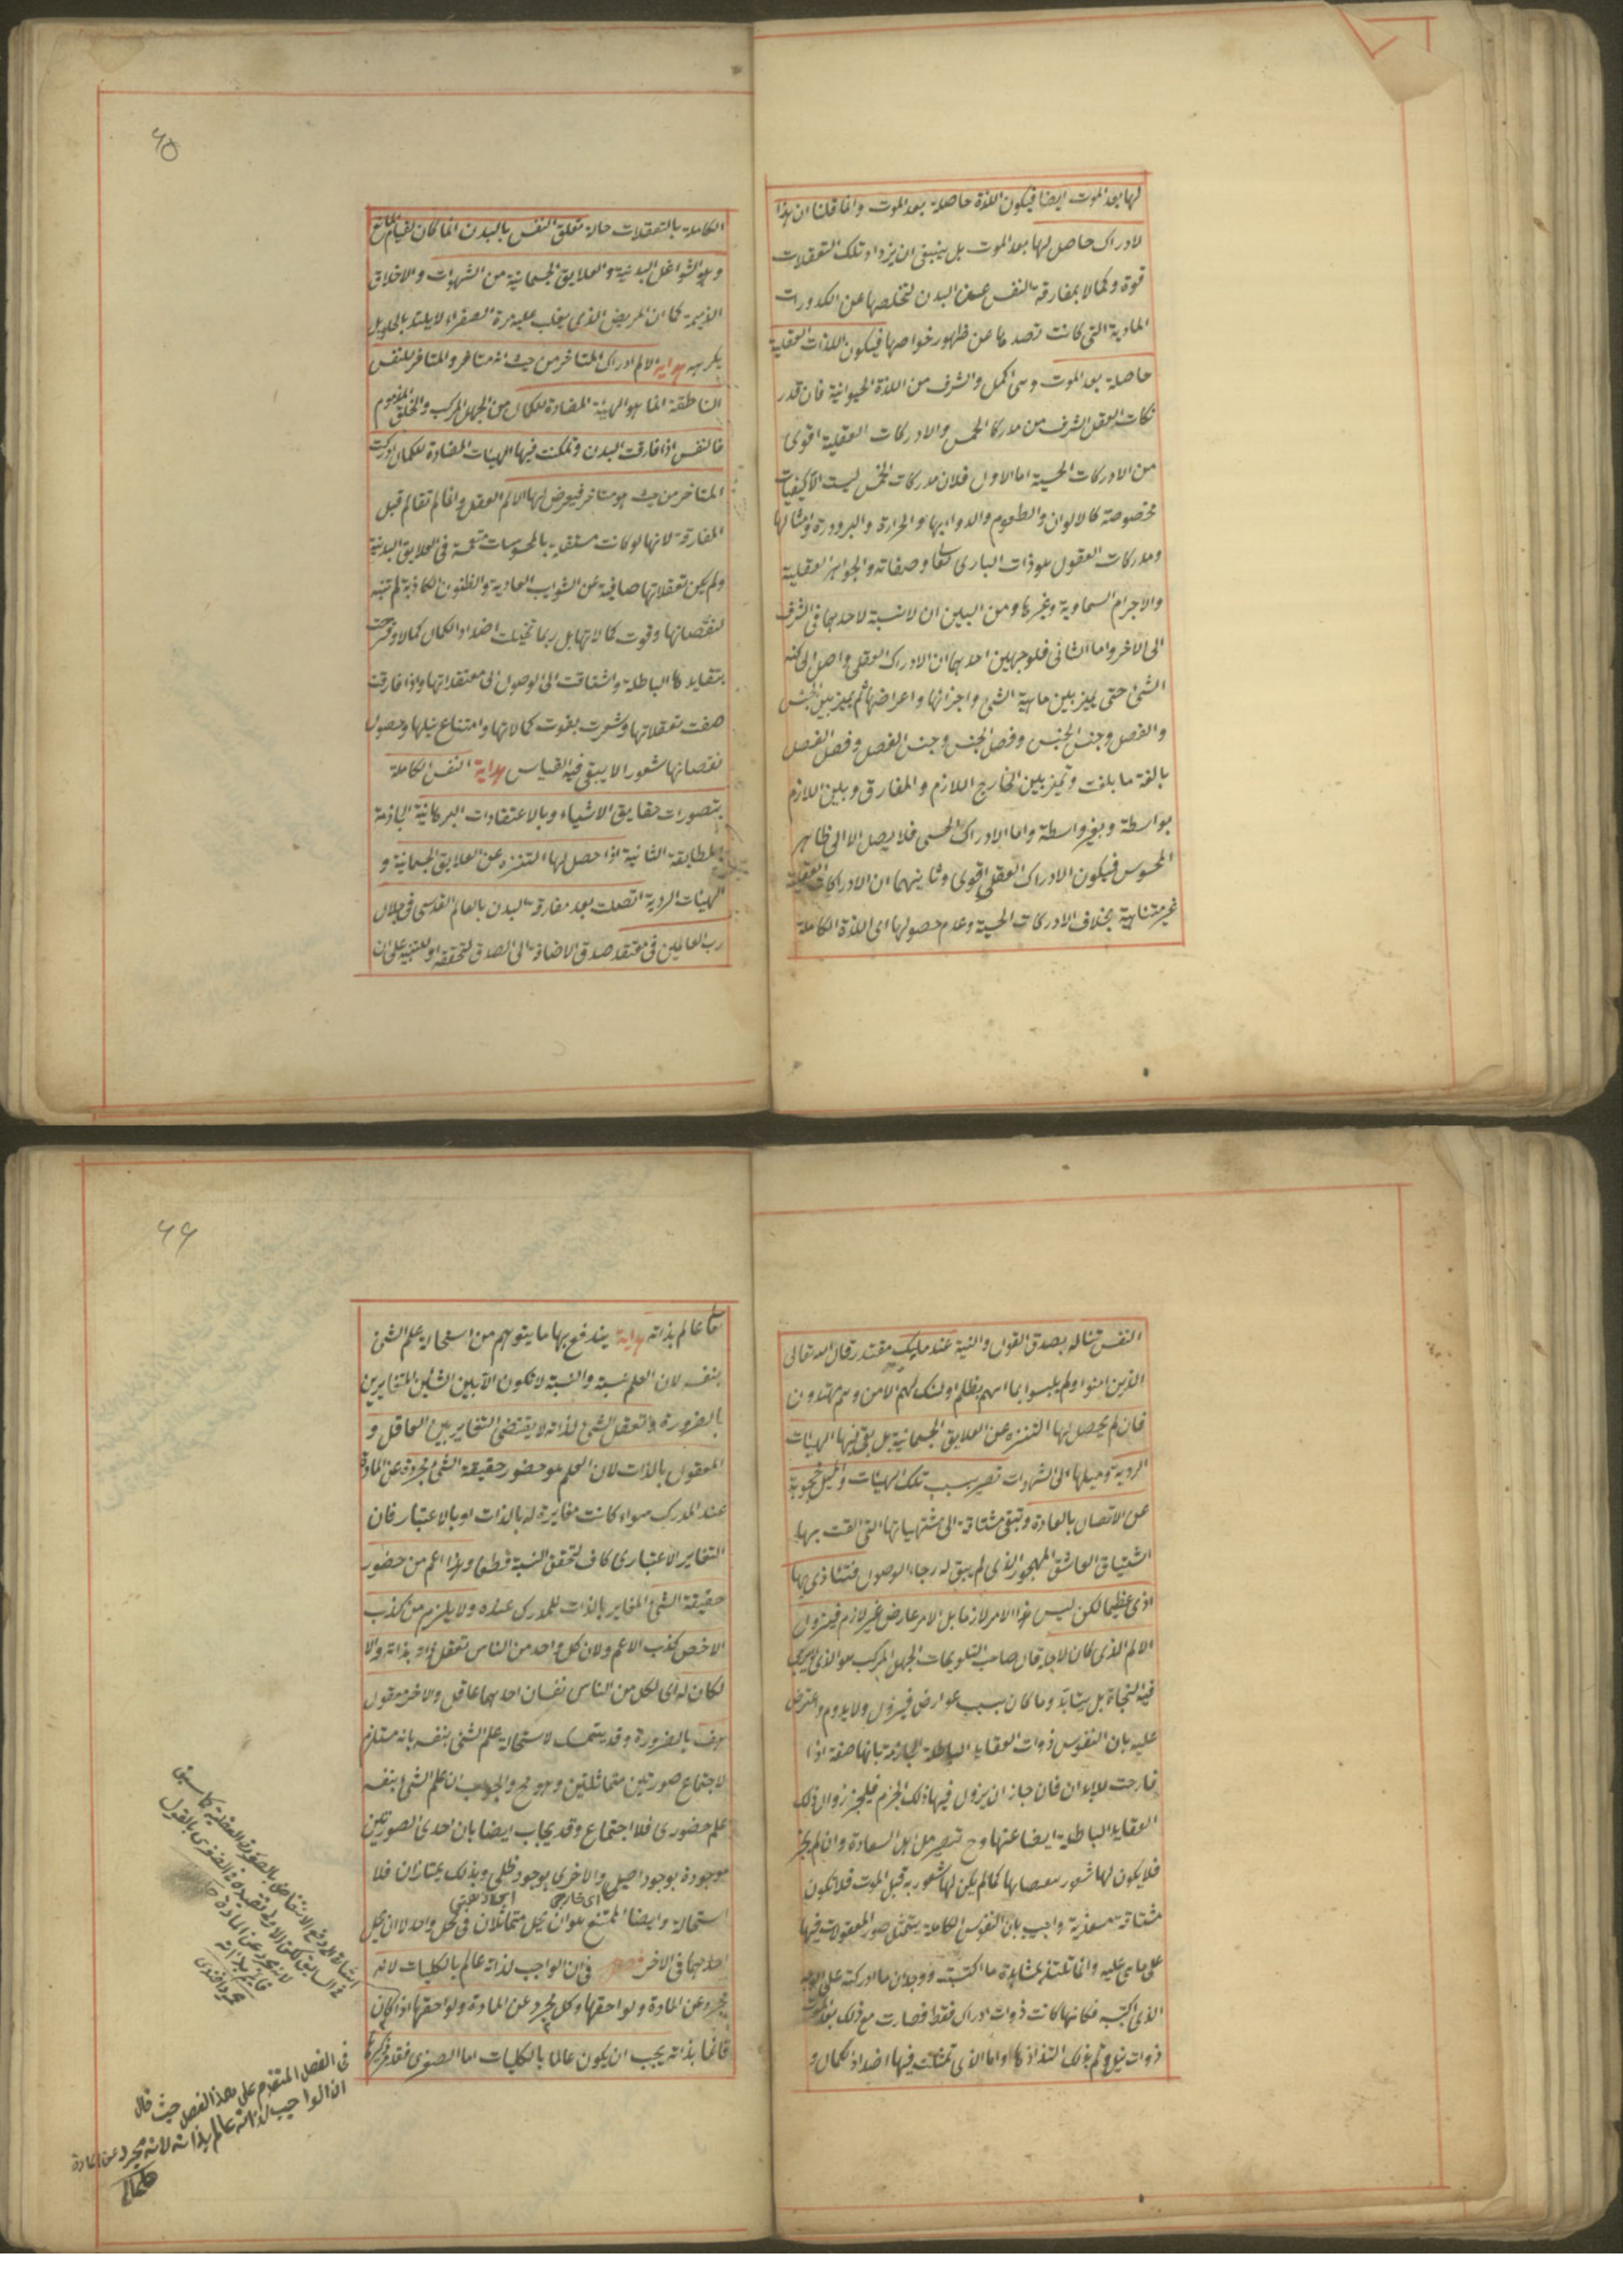 لها بعد الموت ايضا فيكون اللذة حاصلة بعد الموت وانما قلنا ان هذا
لادراك حاصل لها بعد الموت بل ينبغى ان يزداد تلك التعقلات
قوة وكمالا بمفارقة النفس عن البدن لتخلصها عن الكدورات
المادية التى كانت تصدها عن ظهور خواصها فيكون اللذات العقلية
حاصلة بعد الموت وهى اكمل واشرف من اللذة الحيوانية فان قدر
كات العقل اشرف من مدركا الحس والادركات العقلية اقوى
من الادركات الحسية اما الاول فلان مدركات الحس ليست الا كيفيات
مخصوصة كالالوان والطعوم والروايح والحرارة والبرودة وامثالها
ومدركات العقول هو ذات البارى تعا وصفاته والجواهر العقلية
والاجرام السماوية وغيرها ومن البين ان لا نسبة لاحدهما فى الشرف
الى الاخر واما الثانى فلوجهين احدهما ان الادراك العقلى واصل الى كنه
الشئ حتى يميز بين ماهية الشئ واجزائها واعراضها ثم يميز بين الجنس
والفصل وجنس الجنس وفصل الجنس وجنس الفصل وفصل الفصل
بالغة ما بلغت وتميز بين الخارج اللازم والمفارق وبين اللازم
بواسطة وبغير واسطة واما الادراك الحسى فلا يصل الا الى ظاهر
المحسوس فيكون الادراك العقلى اقوى وثانيهما ان الادراكات العقلية
غير متناهية بخلاف الادركات الحسية وعدم حصولها اى اللذة الكاملة
٦٥
الكاملة بالتعقلات حالة تعلق النفس بالبدن انما كان لقيام المانع
وهو الشواغل البدنية والعلايق الجسمانية من الشهوات والاخلاق
الذميمة كما ان المريض الذى يغلب عليه مرة الصفراء لا يلتذ بالحلو بل
يكرهه هداية الالم ادراك المتنافر من حيث انه متنافر والمتنافر للنفس
الناطقة انما هو الهيئة المضادة للكمال من الجهل المركب والخلق المذموم
فالنفس اذا فارقت البدن وتمكنت فيها الهيئات المضادة للكمال ادركت
المتنافر من حيث هو متنافر فيعرض لها الالم العقلى وانما لم تتالم قبل
المفارقة لانها لو كانت مستقلة بالمحسوسات منغمسة فى العلايق البدنية
ولم يكن تعقلاتها صافية عن الشوايب العادية والظنون الكاذبة لم تنبه
لنقصانها وفوت كمالاتها بل ربما تخيلت اضداد الكمال كمالا وفرحت
بتقايدها الباطلة واشتاقت الى الوصول الى معتقداتها واذا فارقت
صفت تعقلاتها وشعرت بفوت كمالاتها وامتناع نيلها وحصول
نقصانها شعورا لا يبقى فيه القياس هداية النفس الكاملة
بتصورات حقايق الاشياء وبالاعتقادات البرهانية الجازمة
المطابقة الثانية اذا حصل لها التنزه عن العلايق الجسمانية و
الهيئات الردية اتصلت بعد مفارقة البدن بالعالم القدسى فى جلال
رب العالمين فى مقعد صدق الاضافة الى الصدق لتحققه او للتنبيه على ان
النفس تناله بصدق القول والنية عند مليك مقتدر قال الله تعالى
الذين امنوا ولم يلبسوا ايمانهم بظلم اولئك لهم الامن وهم مهتدون
فان لم يحصل لها التنزه عن العلايق الجسمانية بل بقى فيها الهيئات
الردية وميلها الى الشهوات تصير بسبب تلك الهيئات والميل محجوبة
عن الاتصال بالعادة وتبقى مشتاقة الى مشتهياتها التى الفت بها
اشتياق العاشق المهجور الذى لم يبق له رجاء الوصول فتتاذى بها
اذى عظيما لكن ليس هذا الامر لازما بل الامر عارض غير لازم فيزول
الالم الذى كان لاجله قال صاحب التلويحات الجهل المركب هو الذى لا يرجى
فيه النجاة بل يتابد وما كان بسبب عوارض فيزول ولا يدوم واعترض
عليه بان النفوس ذوات العقايد الباطلة الجازمة بانها صفة اذا
فارقت الابدان فان جاز ان يزول فيها ذلك الجزم فليجز زوال ذلك
العقايد الباطلة ايضا عنها وح تصير من اهل السعادة وان لم يجز
فلا يكون لها شعور بنقصانها كما لم يكن لها شعور به قبل الموت فلا تكون
مشتاقة معذبة واجيب بان النفوس الكاملة يتمثل صور المعقولات فيها
على ما هى عليه وانما تلتذ بمشاهدة ما اكتسبته ووجدان ما ادركته على الوجه
الذى اكتسبه فكانها كانت ذوات ادراك فقط فصارت مع ذلك بعد الموت
ذوات نيل وتم بذلك التذاذها واما الذى تمثلت فيها اضداد كمال و
٦٦
تعا عالم بذاته هداية يندفع بها ما يتوهم من استحالة علم الشئ
بنفسه لان العلم نسبة والنسبة لا تكون الا بين الشيئين المتغايرين
بالضرورة تعقل الشئ لذاته لا يقتضى التغاير بين العاقل و
المعقول بالذات لان العلم هو حضور حقيقة الشئ مجردة عن المادة
عند المدرك سواء كانت مغايرة له بالذات او بالاعتبار فان
التغاير الاعتبارى كاف لتحقق النسبة قطعا وهذا اعم من حضور
حقيقة الشئ المغاير بالذات للمدرك عنده ولا يلزم من كذب
الاخص كذب الاعم ولان كل واحد من الناس تعقل ذاته بذاته والا
لكان له اى لكل من الناس نفسان احدهما عاقل والاخر معقول
هف بالضرورة وقد يتمسك لاستحالة علم الشئ بنفسه بانه مستلزم
لاجتماع صورتين متماثلتين وهو مح والجواب ان علم الشئ بنفسه
علم حضورى فلا اجتماع وقد يجاب ايضا بان احدى الصورتين
موجودة بوجود اصيل والاخرى بوجود ظلى وبذلك يمتازان فلا
اى خارجى
استحالة وايضا الممتنع هو ان يحل متماثلان فى محل واحد لا ان يحل
احدهما فى الاخر فصل فى ان الواجب لذاته عالم بالكليات لانه
مجرد عن المادة ولواحقها وكل مجرد عن المادة ولواحقها اذا كان
قائما بذاته يجب ان يكون عالما بالكليات اما الصغرى فقد مر ذكرها
اشارة الى دفع الانتقاض بالصورة العقلية كما سبق
لانه مجرد عن المادة
قائم بذاته
محمود افندى
فى الفصل المتقدم على هذا الفصل حيث قال
ان الواجب لذاته عالم بذاته لانه مجرد عن المادة